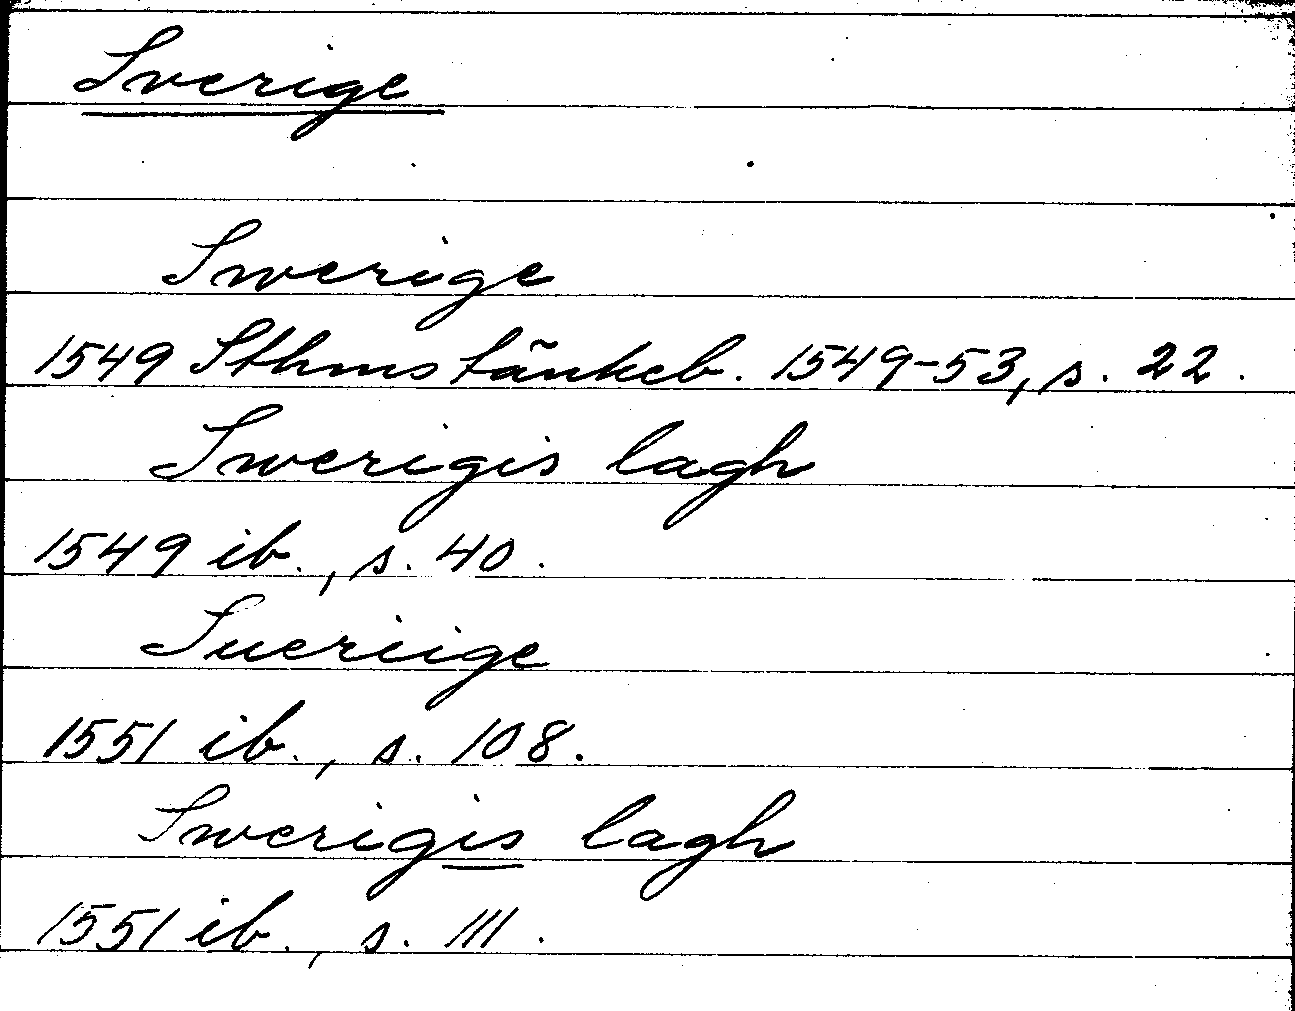 Sverige
Swerige
1549 Sthms tänkeb. 1549-53, s. 22.
Swerigis lagh
1549 ib., s. 40.
Sueriige
1551 ib., s. 108.
Swerigis lagh
1551 ib., s. 111.